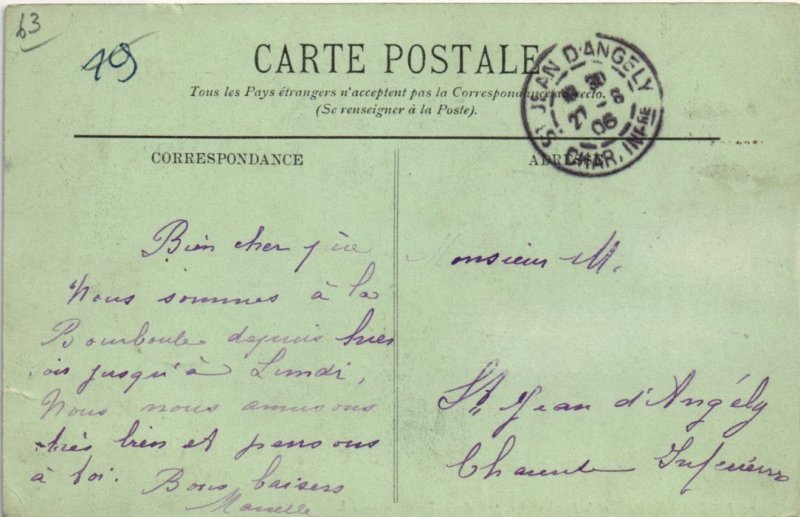 63
19
CARTE POSTALE
Tous les Pays étrangers n'acceptent pas la Correspondance au recto.
(Se renseigner à la Poste).
ST JEAN D'ANGELY
27
06
CHAR. INF.RE
CORRESPONDANCE
Bien cher père
Nous sommes à la
Bourboule depuis hier
jusqu'à Lundi,
Nous nous amusons
très bien et pensons
à toi. Bons baisers
ADRESSE
Monsieur M.
St Jean d'Angély
Charente Inférieure